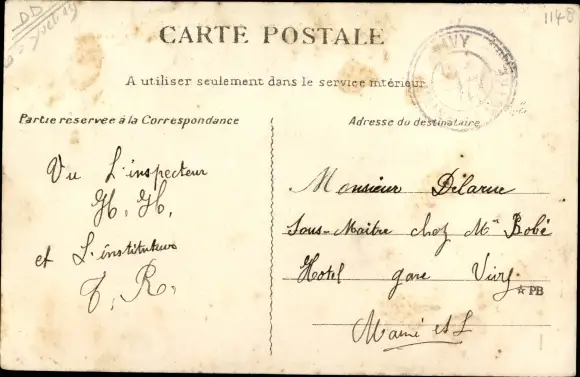 DD
1148
CARTE POSTALE
A utiliser seulement dans le service intérieur
Partie réservée à la Correspondance
Adresse du destinataire
Vu L'inspecteur
H. H.
et L'instituteur
T. R.
Monsieur Delarue
Sous-Maitre chez Mr Bobé
Hotel gare Vivy
☆ PB
Maine et L
VIVY